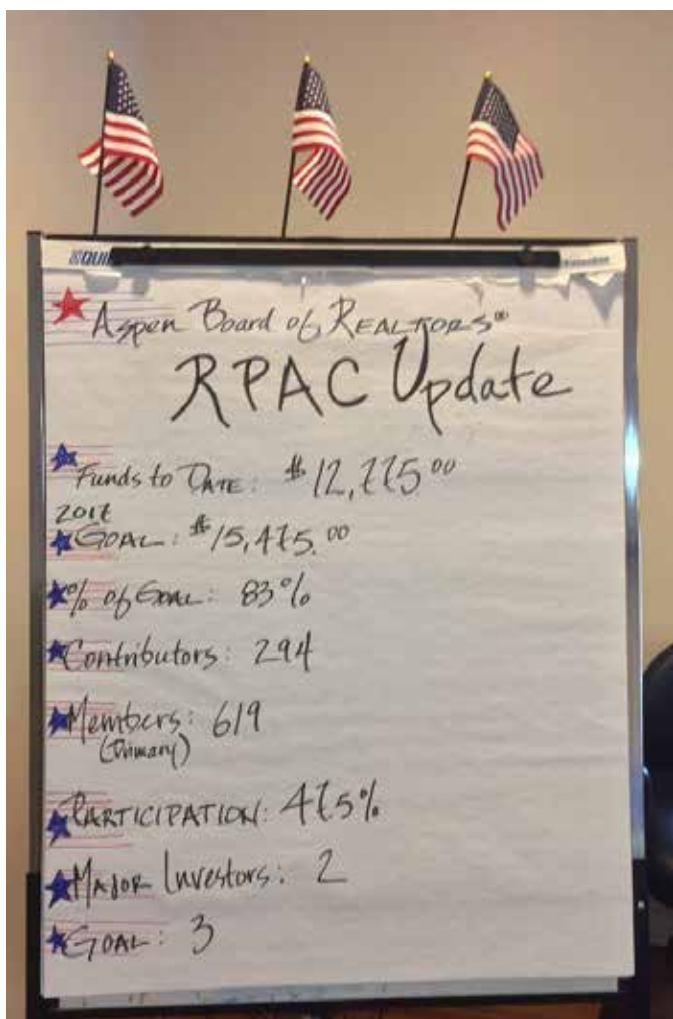 Aspen Board of REALTORS®
RPAC Update
Funds to DATE: $12,775.00
2017
GOAL: $15,475.00
% of GOAL: 83%
Contributors: 294
Members: 619
(Primary)
PARTICIPATION: 47.5%
MAJOR Investors: 2
GOAL: 3